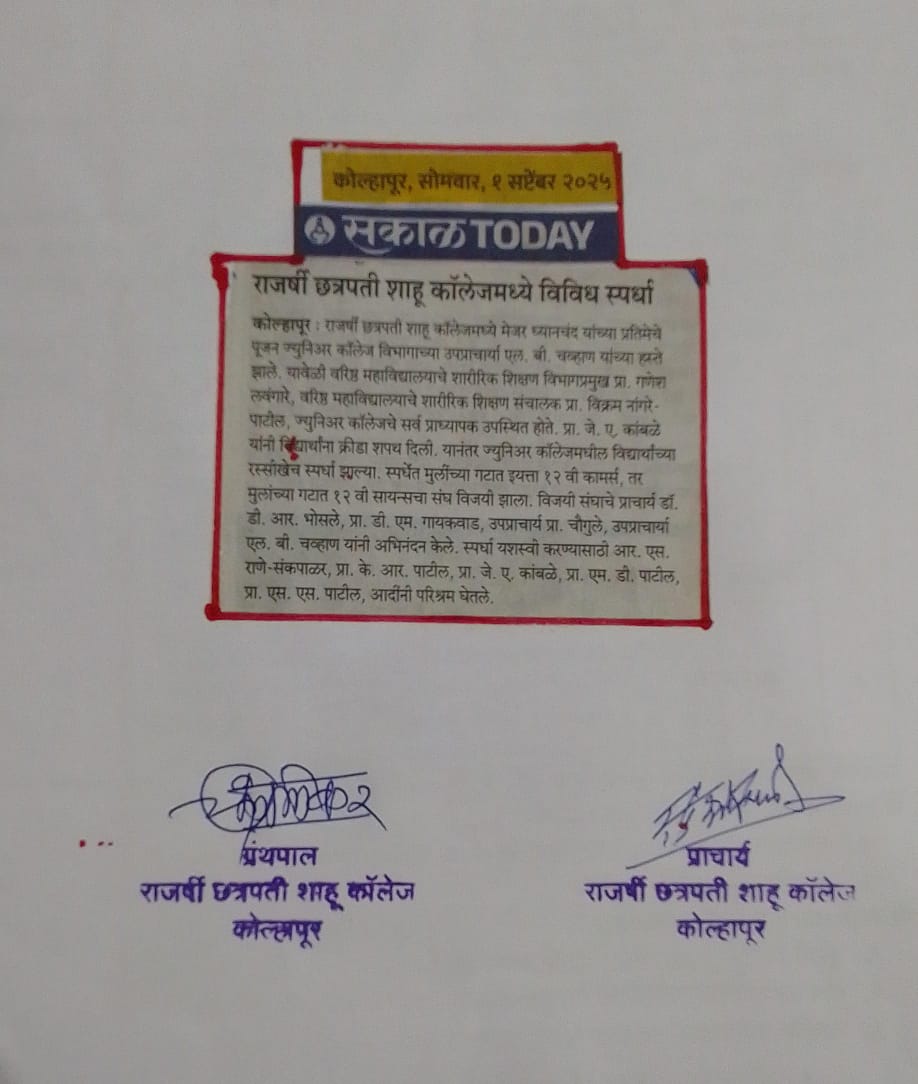 कोल्हापूर, सोमवार, १ सप्टेंबर २०२५
सकाळ TODAY
राजर्षी छत्रपती शाहू कॉलेजमध्ये विविध स्पर्धा
कोल्हापूर : राजर्षी छत्रपती शाहू कॉलेजमध्ये मेजर ध्यानचंद यांच्या प्रतिमेचे
पूजन ज्युनिअर कॉलेज विभागाच्या उपप्राचार्या एल. बी. चव्हाण यांच्या हस्ते
झाले. यावेळी वरिष्ठ महाविद्यालयाचे शारीरिक शिक्षण विभागप्रमुख प्रा. गणेश
लवंगारे, वरिष्ठ महाविद्यालयाचे शारीरिक शिक्षण संचालक प्रा. विक्रम नांगरे-
पाटील, ज्युनिअर कॉलेजचे सर्व प्राध्यापक उपस्थित होते. प्रा. जे. ए. कांबळे
यांनी विद्यार्थांना क्रीडा शपथ दिली. यानंतर ज्युनिअर कॉलेजमधील विद्यार्थ्यांच्या
रस्सीखेच स्पर्धा झाल्या. स्पर्धेत मुलींच्या गटात इयत्ता १२ वी कामर्स, तर
मुलांच्या गटात १२ वी सायन्सचा संघ विजयी झाला. विजयी संघाचे प्राचार्य डॉ.
डी. आर. भोसले, प्रा. डी. एम. गायकवाड, उपप्राचार्य प्रा. चौगुले, उपप्राचार्या
एल. बी. चव्हाण यांनी अभिनंदन केले. स्पर्धा यशस्वी करण्यासाठी आर. एस.
राणे-संकपाळर, प्रा. के. आर. पाटील, प्रा. जे. ए. कांबळे, प्रा. एम. डी. पाटील,
प्रा. एस. एस. पाटील, आदींनी परिश्रम घेतले.
ग्रंथपाल
राजर्षी छत्रपती शाहू कॉलेज
कोल्हापूर
प्राचार्य
राजर्षी छत्रपती शाहू कॉलेज
कोल्हापूर